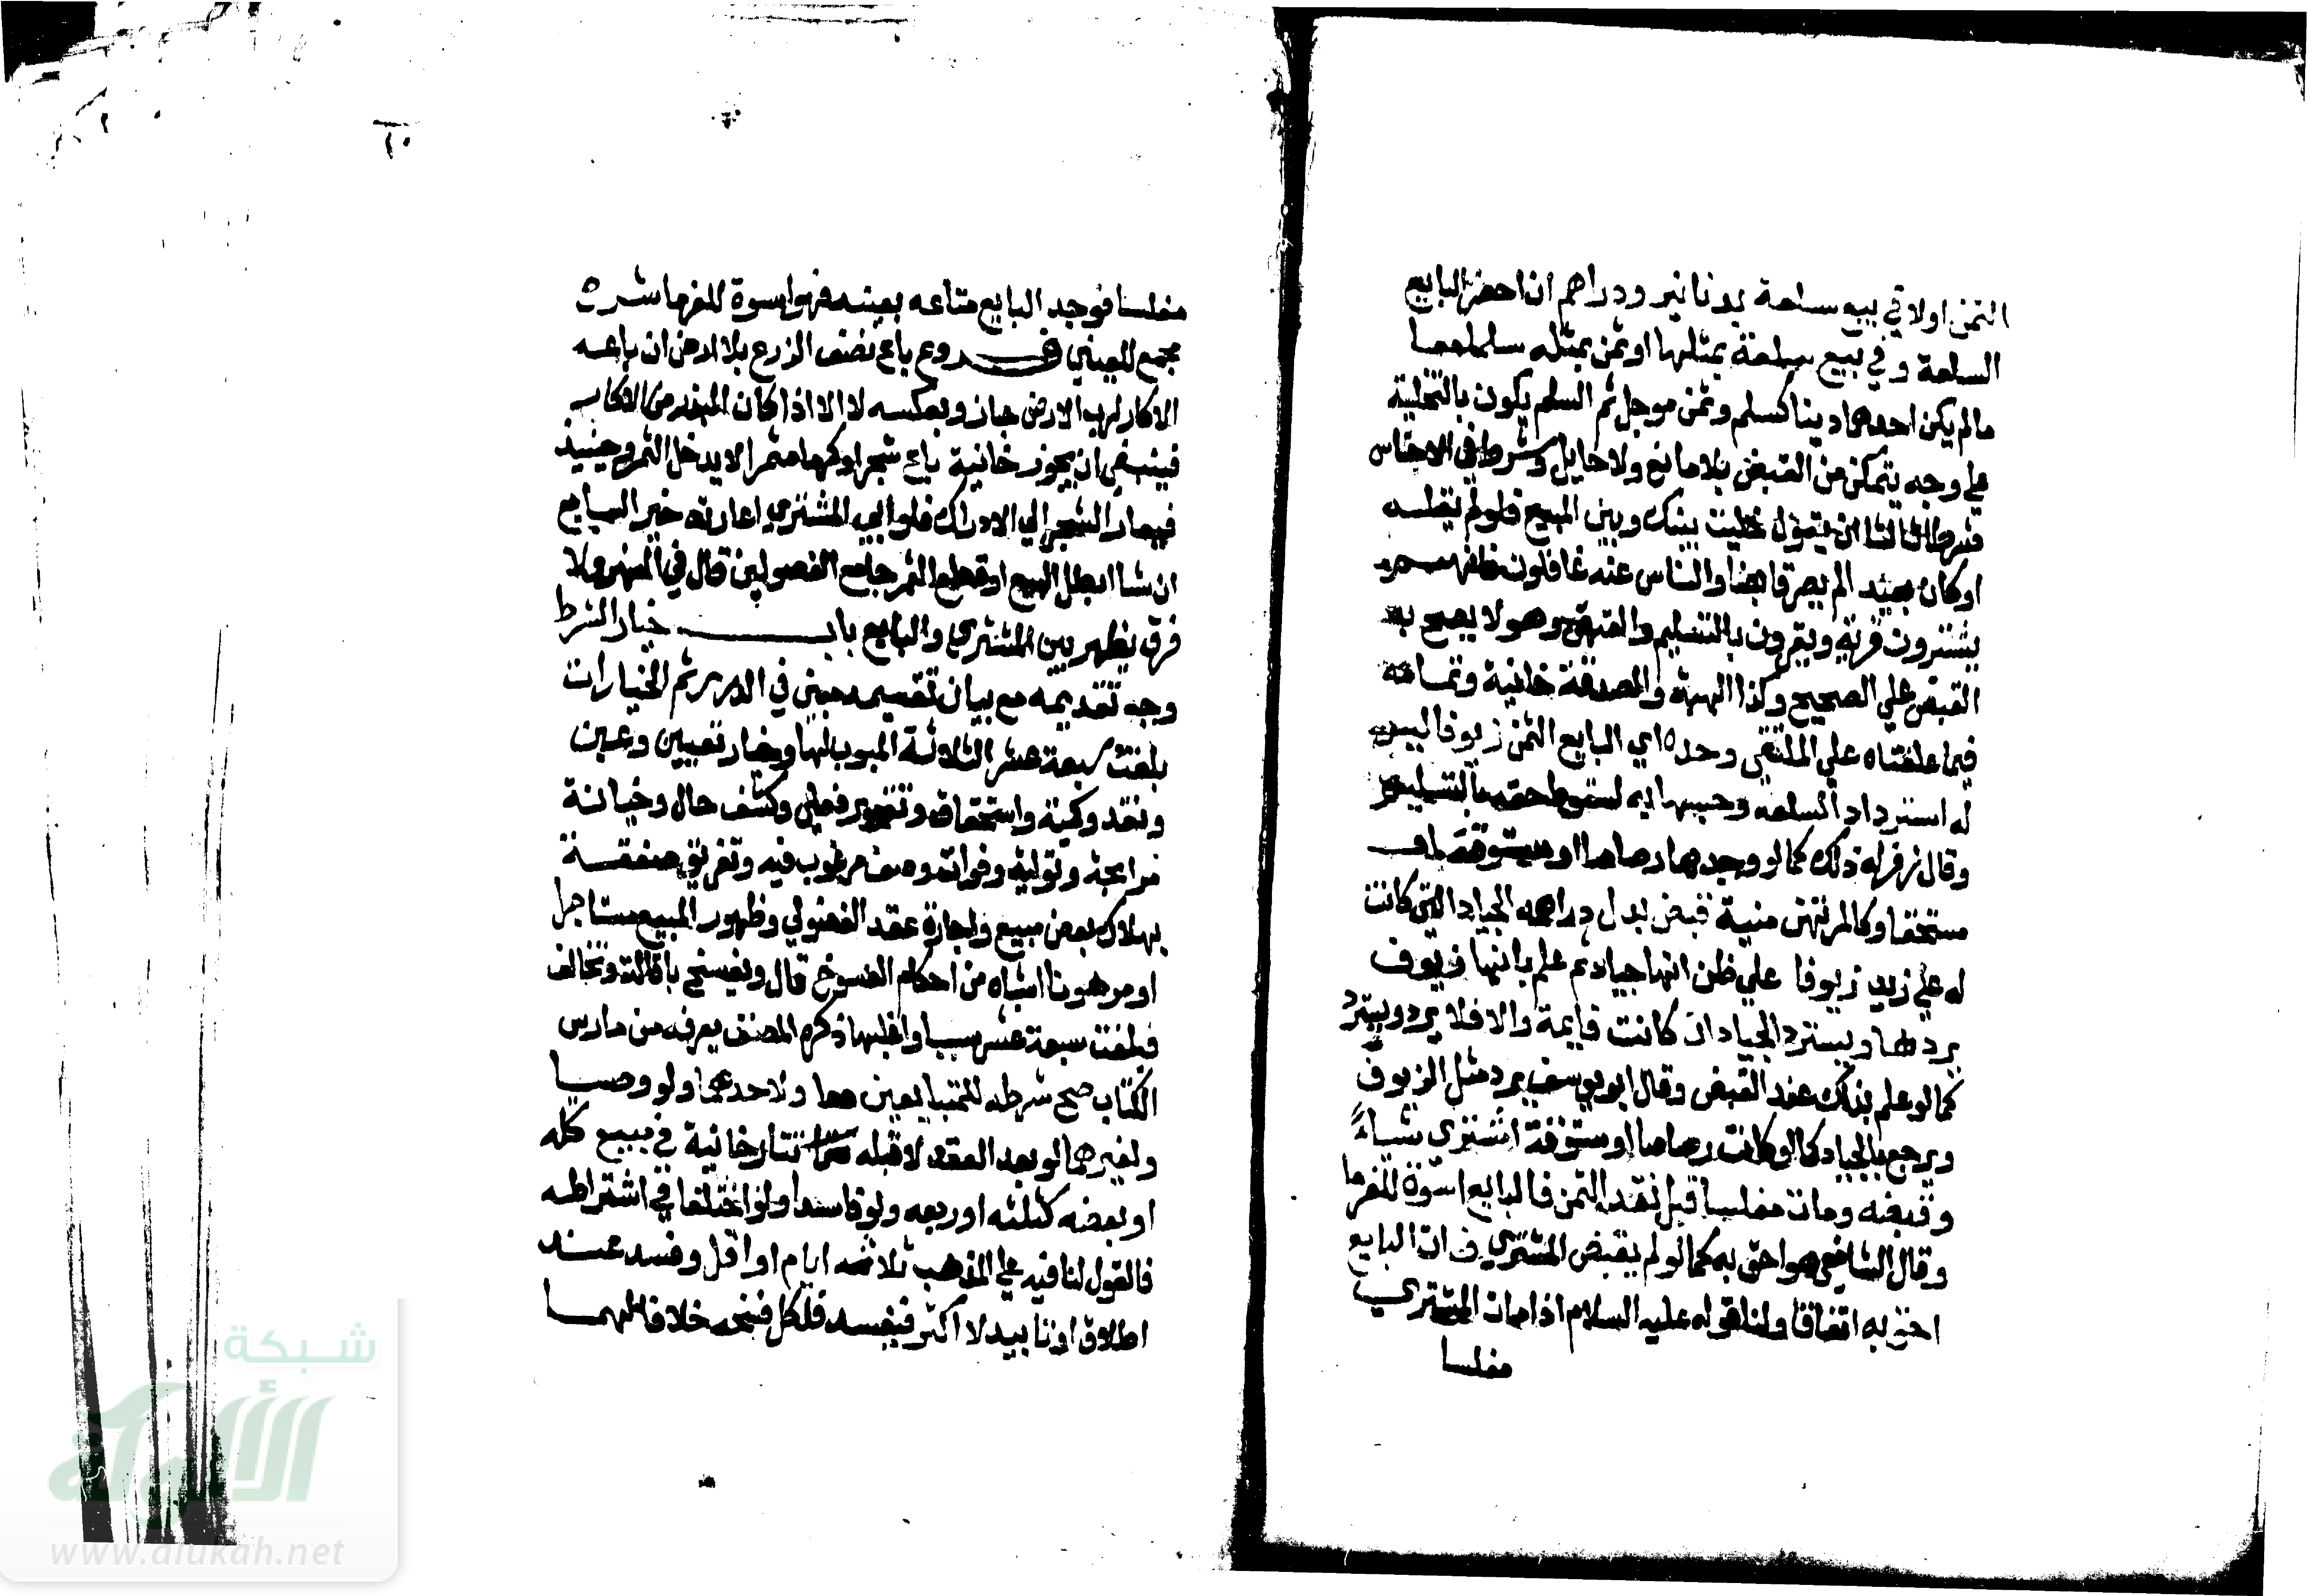 الثمن اولا في بيع سلعة بدنانير ودراهم ان احضر البايع
السلعة وفي بيع سلعة بمثلها او ثمن بمثله سلما معا
مالم يكن احدهما دينا كسلم وثمن موجل ثم السلم يكون بالتخلية
علي وجه يتمكن من القبض بلا مانع ولا حايل وشرط في الاجناس
شرطا ثالثا ان يقول خليت بينك وبين المبيع فلولم يقلسه
او كان بعيدا لم يصر قابضا والناس عنه غافلون فانهم
يشترون قرية ويقرون بالتسليم والقبض وهو لا يصح به
القبض علي الصحيح وكذا الهبة والصدقة خانية وتمامه
فيما علقناه علي الملتقي وحده اي البايع الثمن زيوفا ليس
له استرداد السلعة وحبسها به لسقوط حقه بالتسليم
وقال زفر له ذلك كما لو وجدها رصاصا او ستوقة او
مستحقا وكالمرتهن منية قبض بدل دراهمه الجياد التي كانت
له علي زيد زيوفا علي ظن انها جياد ثم علم بانها زيوف
يردها ويسترد الجياد ان كانت قايمة والا فلا يرد ويسترد
كما لو علم بذلك عند القبض وقال ابو يوسف يرد مثل الزيوف
ويرجع بالجياد كما لو كانت رصاصا او ستوقة اشتري شياء
وقبضه ومات مفلسا قبل نقد الثمن فالبايع اسوة للغرما
وقال الشافعي هو احق به كما لو لم يقبض المشتري فان البايع
احق به اتفاقا ولنا قوله عليه السلام اذا مات المشتري
مفلسا
١٠
مفلسا فوجد البايع متاعه بعينه فهو اسوة للغرما شرح
مجمع للعيني فروع باع نصف الزرع بلا ارض ان باعه
الاكار لرب الارض جاز وبعكسه لا الا اذا كان البذر من الاكار
فينبغي ان يجوز خانية باع شجرا او كرما مثمرا لا يدخل الثمر وحينيذ
فيعار الشجر الي الادراك فلو ابي المشتري اعارته خير البايع
ان شا ابطل البيع او قطع الثمر جامع الفصولين قال في النهر ولا
فرق يظهر بين المشتري والبايع باب خيار الشرط
وجه تقديمه مع بيان تقسيمه مبين في الدرر ثم الخيارات
بلغت سبعة عشر الثلاثة المبوب لها وخيار تعيين وغبن
ونقد وكمية واستحقاق وتغرير فعلي وكشف حال وخيانة
مرابحة وتولية وفوات وصف مرغوب فيه وتفريق صفقة
بهلاك بعض مبيع واجازة عقد الفضولي وظهور المبيع مستاجرا
او مرهونا اشباه من احكام الفسوخ قال ويفسخ باقالة وتخالف
فبلغت تسعة عشر سببا واغلبها ذكره المصنف يعرفه من مارس
الكتاب صح شرطه للمتبايعين معا ولاحدهما ولو وصيا
ولغيرهما لو بعد العقد لا قبله تتارخانية في مبيع كله
او بعضه كثلثه او ربعه ولو فاسدا ولو اختلفا في اشتراطه
فالقول لنافيه علي المذهب ثلاثة ايام او اقل وفسد عند
اطلاق او تابيد لا اكثر فيفسد فلكل فسخه خلافا لهما
شبكة
الألوكة
www.alukah.net